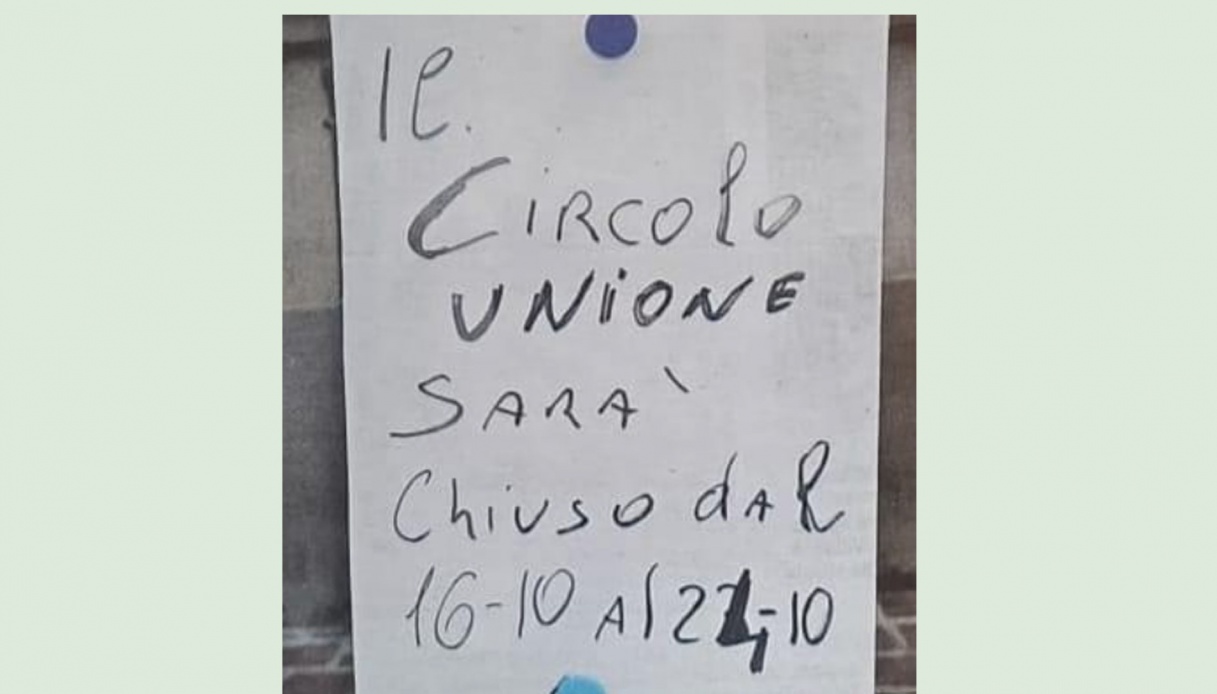 Il.
Circolo
UNiONE
SARA`
Chiuso dAl
16-10 Al